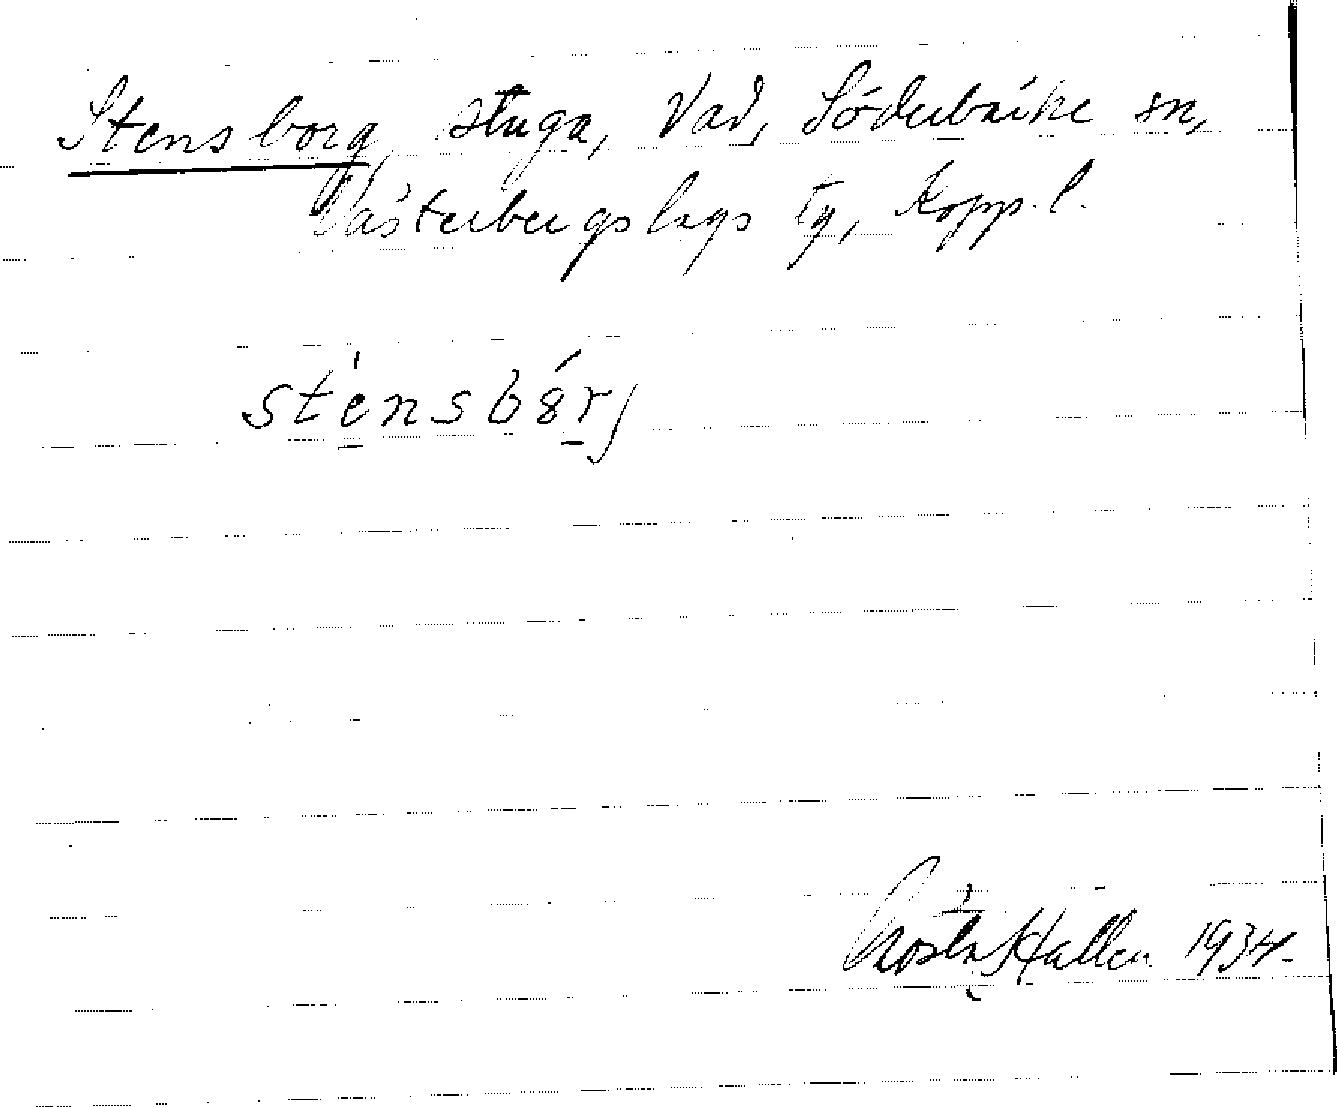 Stensborg, stuga, Vad, Söderbärke sn,
Västerbergslags tg, Kopp. l.
sténsbórj
Gösta Hallén 1934